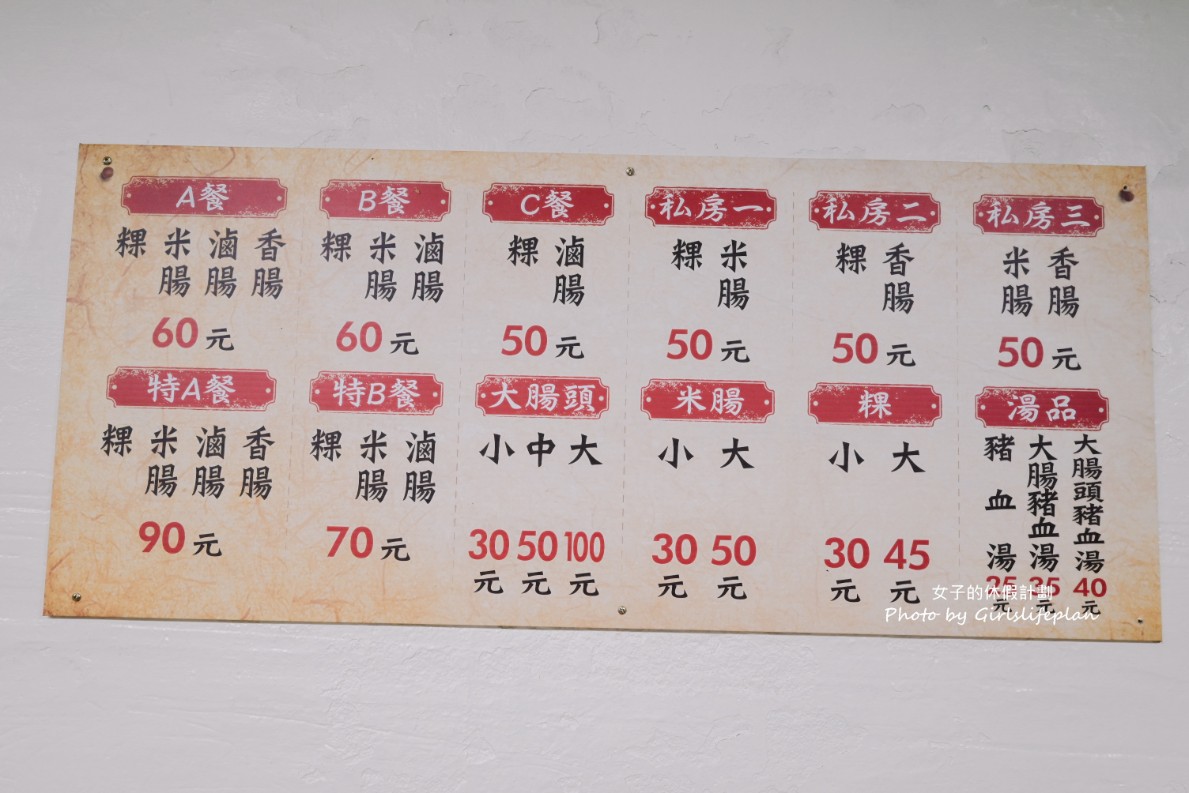 A餐
粿 米腸 滷腸 香腸
60元
B餐
粿 米腸 滷腸
60元
C餐
粿 滷腸
50元
私房一
粿 米腸
50元
私房二
粿 香腸
50元
私房三
米腸 香腸
50元
特A餐
粿 米腸 滷腸 香腸
90元
特B餐
粿 米腸 滷腸
70元
大腸頭
小 中 大
30元 50元 100元
米腸
小 大
30元 50元
粿
小 大
30元 45元
湯品
豬血湯 大腸豬血湯 大腸頭豬血湯
元 35元 40元
女子的休假計劃
Photo by Girlslifeplan